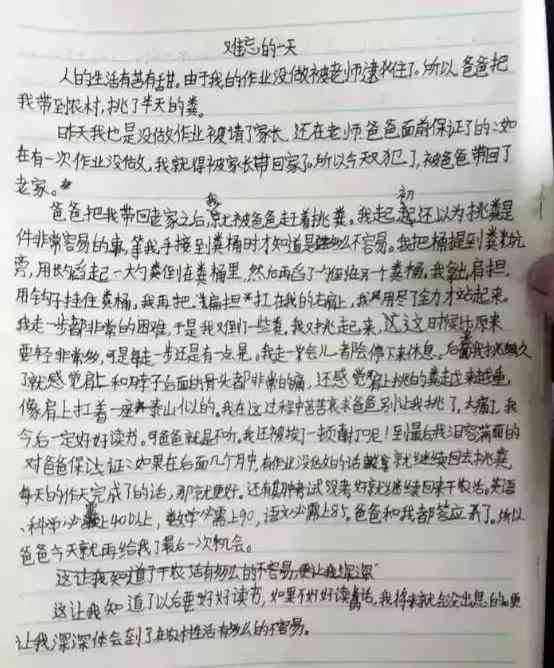 难忘的一天
人的生活有苦有甜。由于我的作业没做被老师逮住了。所以爸爸把
我带到农村,挑了半天的粪。
昨天我也是没做作业被请了家长,还在老师爸爸面前保证了的:如
在有一次作业没做,我就得被家长带回家了。所以今天又犯了,被爸爸带回了
老家。
爸爸把我带回老家之后,我就被爸爸赶着挑粪。我起初还以为挑粪是
件非常容易的事,等我手接到粪桶时才知道是多么不容易。我把桶提到粪坑
旁,用粪舀起一大勺粪倒在粪桶里,然后再舀了勺倒另一个粪桶,我拿出肩担,
用钩子挂住粪桶,我再把扁担扛在我的右肩上,我用尽了全力才站起来。
我走一步都非常的困难,于是我又倒了一些粪,我又挑起来,这次时候比原来
要轻非常多,可是每走一步还是有一点晃。我走一会儿都会停下来休息。后我挑久
了就感觉肩上和脖子后面的骨头都非常的痛,还感觉肩上挑的粪越来越重,
像肩上扛着一座泰山似的。我在这过程中苦苦哀求爸爸别让我挑了,太痛了,我
今后一定好好读书。可爸爸就是不听,我还被挨了一顿打呢!到最后我泪容满面的
对爸爸保证:如果在后面几个月中,有作业没做好的话就继续回去挑粪,
每天的作天完成了的话,那就更好。还有期考试没考好就继续回来干农活。英语
、科学必需上40以上,数学必需上90,语文必需上85。爸爸和我都答应了。所以
爸爸今天就再给我了最后一次机会。
这让我知道了干农活有多么的不容易,更让我深深
这让我知道了以后要好好读书,如果不好好读书的话,我将来就会没出息的。更
让我深深体会到了在农村生活有多么的不容易。